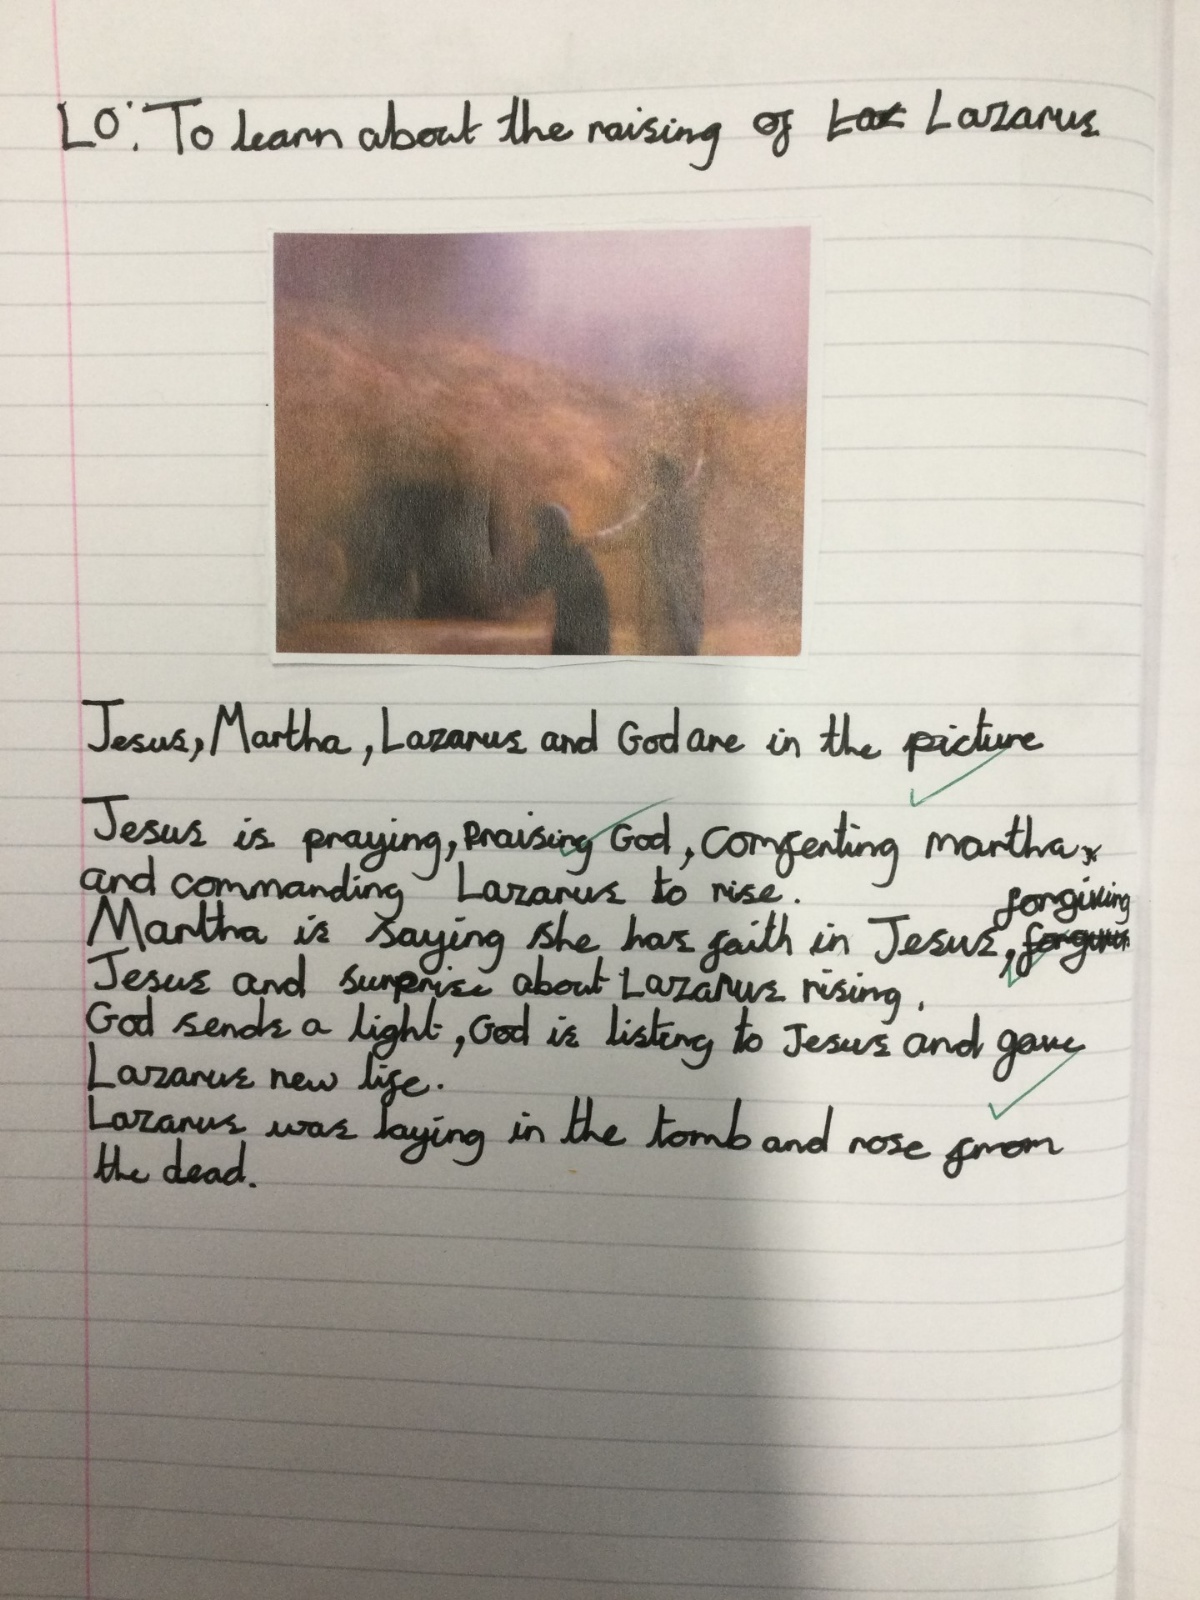 LO: To learn about the raising of Laz Lazarus
Jesus, Martha, Lazarus and God are in the picture
Jesus is praying, Praising God, Comferting martha,
and commanding Lazarus to rise.
forgiving
Martha is saying she has faith in Jesus,
Jesus and surprise about Lazarus rising.
God sends a light, God is listing to Jesus and gave
Lazarus new life.
Lazarus was laying in the tomb and rose from
the dead.